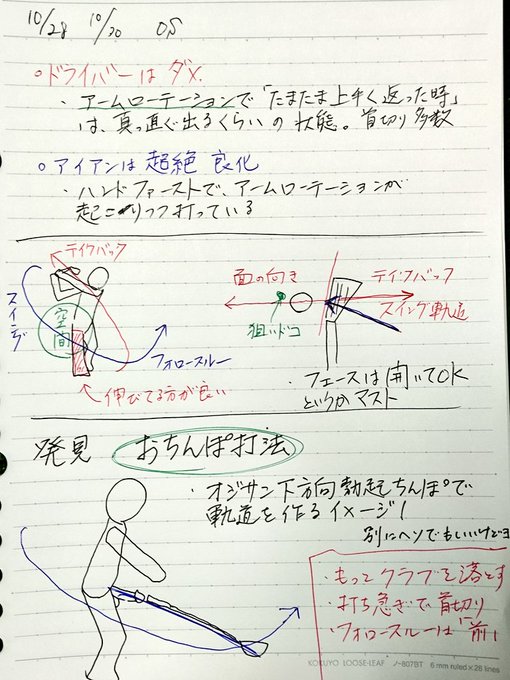 10/28 10/20 OS
○ドライバーはダメ.
・アームローテーションで「たまたま上手く返った時」
は、真っ直ぐ出るくらいの状態。首切り多数
○アイアンは超絶良化
・ハンドファーストで、アームローテーションが
起こりつつ打っている
テイクバック
スイング
空間
フォロースルー
伸びてる方が良い
面の向き
狙いドコ
テイクバック
スイング軌道
・フェースは開いてOK
というかマスト
発見 おちんぽ打法
・オジサン下方向勃起ちんぽで
軌道を作るイメージ!
別にヘソでもいいけどヨ
・もっとクラブを落とす
・打ち急ぎで首切り
・フォロースルーは"前"に
KOKUYO LOOSE-LEAF ノ-807BT 6 mm ruled×28 lines